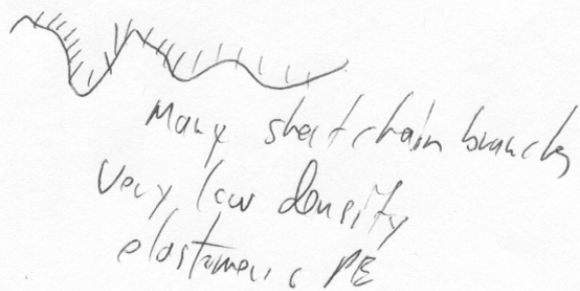 Many short chain branches
Very low density
elastomeric PE